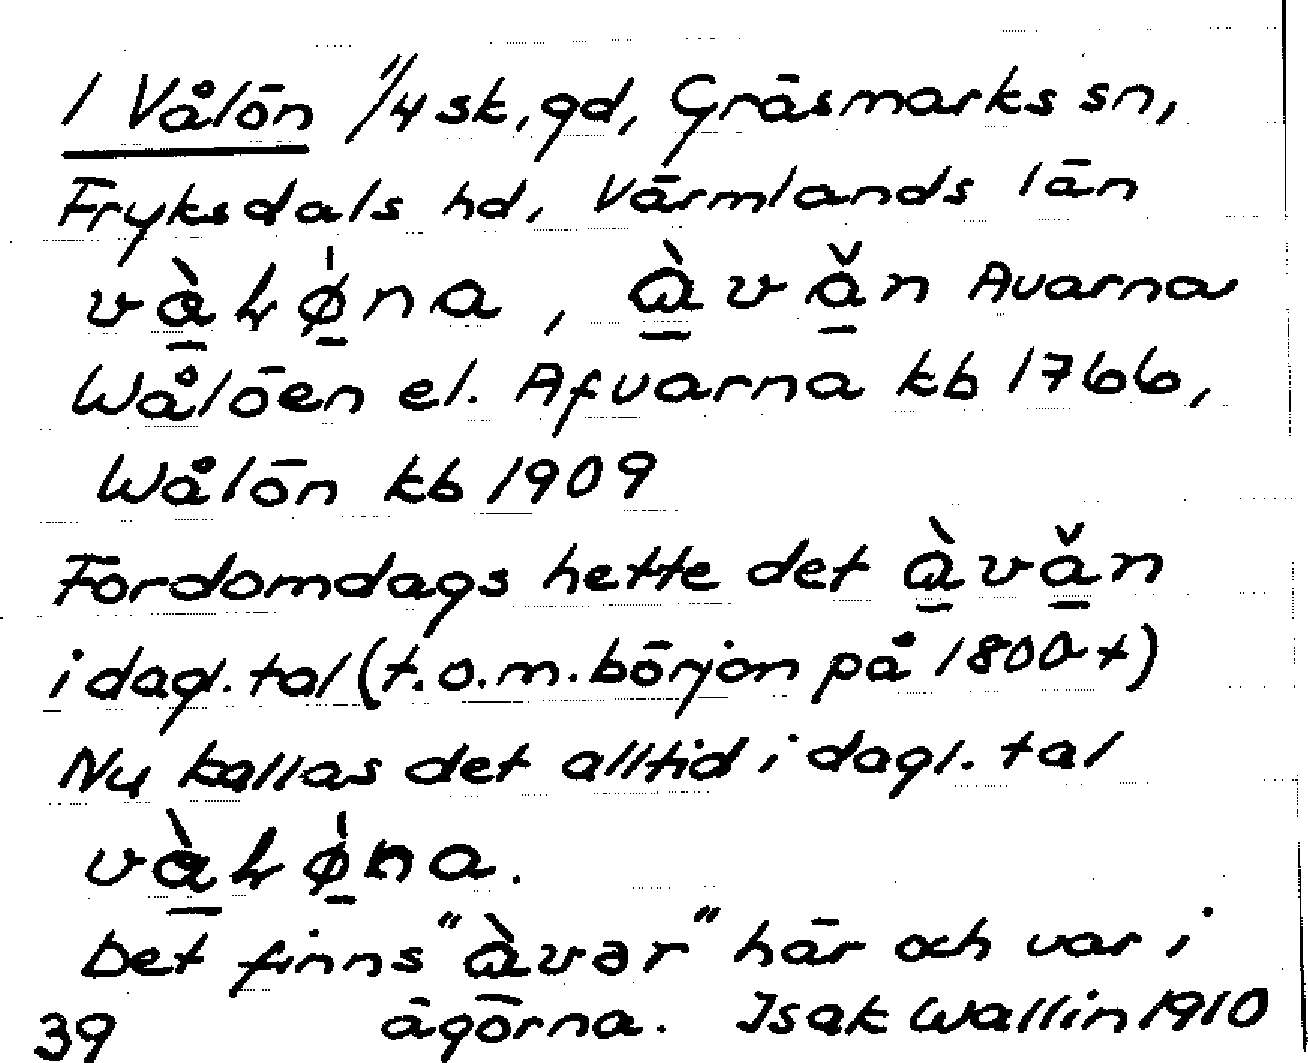 1 Vålön 11/4 sk, gd, Gräsmarks sn,
Fryksdals hd, Värmlands län
và̱ƚø̱̍na, à̱vǎ̱n Avarna
Wålöen el. Afvarna kb 1766,
Wålön kb 1909
Fordomdags hette det à̱vǎ̱n
i dagl. tal (t.o.m. början på 1800-t)
Nu kallas det alltid i dagl. tal
và̱ƚø̱̍na.
Det finns "àvər" här och var i
ägorna. Isak Wallin 1910
39